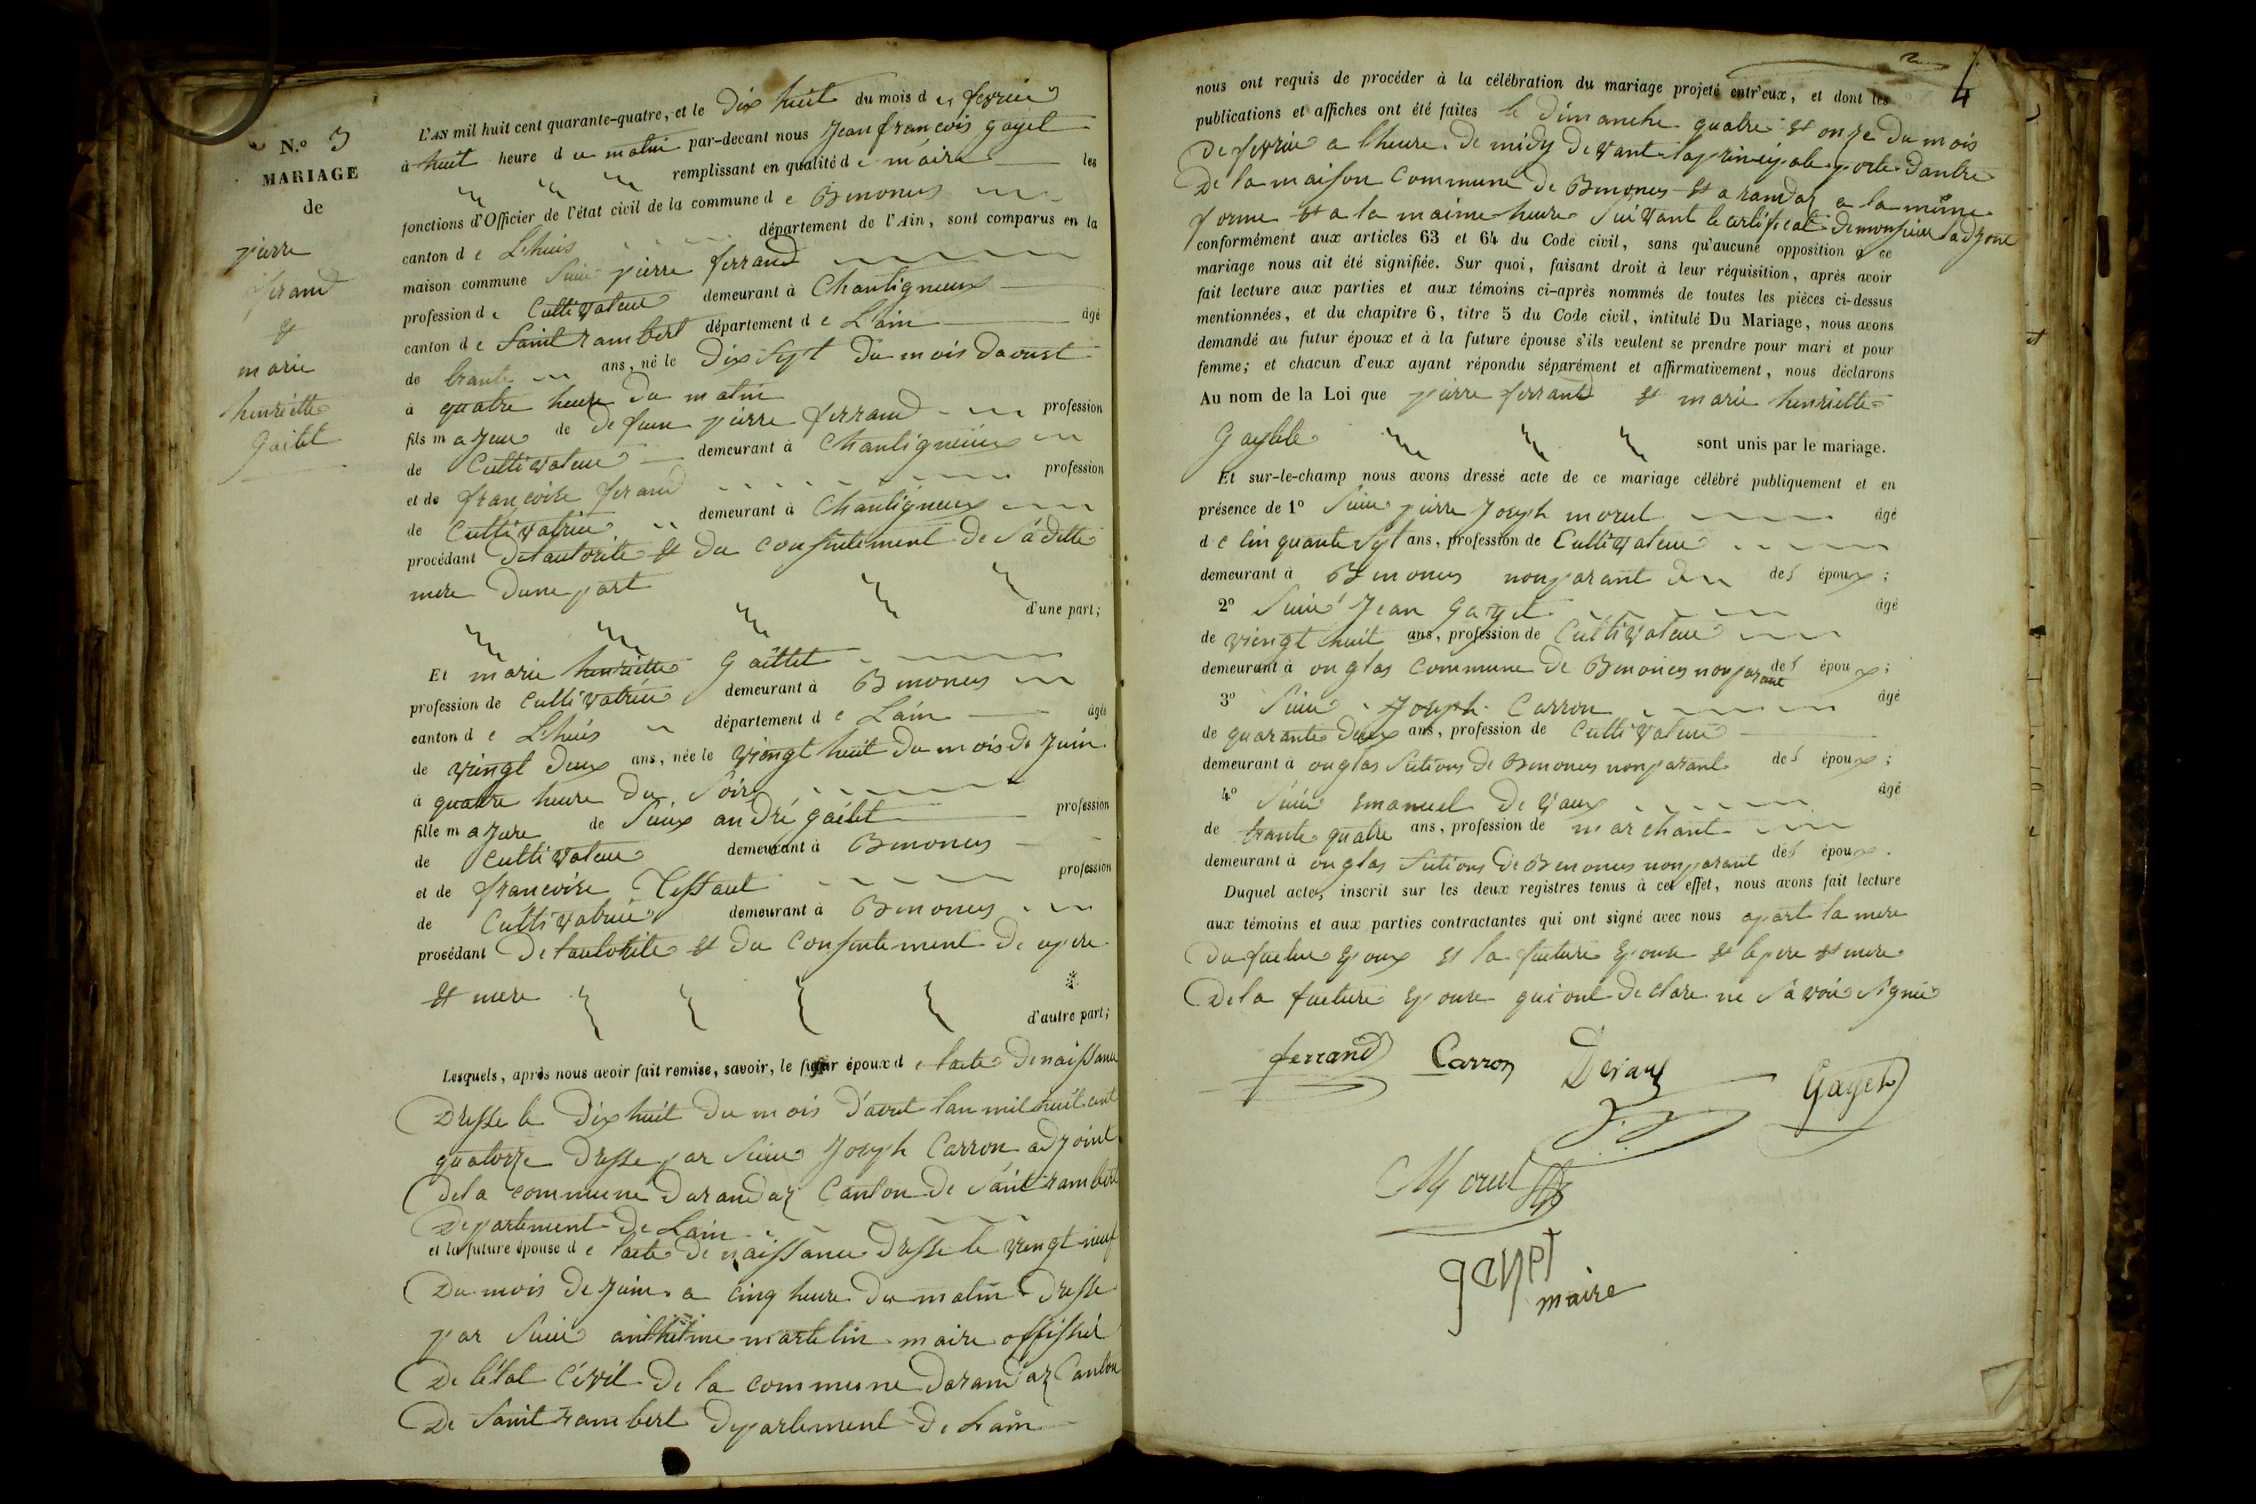 N.o 3
MARIAGE
de
pierre
ferand
et
marie
henriette
Gaitet
L'AN mil huit cent quarante-quatre, et le dix huit du mois de fevrié
à huit heure du matin par-devant nous Jean francois gayet
remplissant en qualité de maire les
fonctions d'Officier de l'état civil de la commune de Bmoncs
canton de Lhuis département de l'Ain, sont comparus en la
maison commune Sieur pierre ferrand
profession de Cultivateur demeurant à Chantigneux
canton de Saint rambert département de Lain âgé
de trante ans, né le dix sept du mois daoust
à quatre heure du matin
fils majeur de defeun pierre ferrand profession
de Cultivateur demeurant à Chantigneux
et de francoise ferand profession
de Cultivatrice demeurant à Chantigneux
procédant de tautorite et du consentement de sadette
mere dune part
d'une part;
Et marie henriette gaittet
profession de cultivatrice demeurant à Bmoncs
canton de Lhuis département de Lain âgée
de vingt deux ans, née le vingt huit du mois de Juin
à quatre heure du soir
fille majeure de Sieux andré gaitet profession
de Cultivateur demeurant à Bmoncs
et de francoise Tissaut profession
de Cultivatrice demeurant à Bmoncs
procédant de tautorite et du consentement de cy pere
et mere
d'autre part;
Lesquels, après nous avoir fait remise, savoir, le futur époux de lacte de naissance
dresse le dix huit du mois d'aout lan mil huit cent
quatorze dresse par Sieur Joseph Carron adjoint
de la commune darandaz Canton de Saint rambert
departement de Lain
et la future épouse de lacte de naissance dresse le vingt neuf
du mois de Juin a cinq heure du matin dresse
par Sieur anthelme martelin maire offisiér
de létat cévil de la commune darandaz Canton
de Saint rambert departement de Lain
4
nous ont requis de procéder à la célébration du mariage projeté entr'eux, et dont les
publications et affiches ont été faites le dimanche quatre et onze du mois
de fevrié a lheure de midy devant laprincipale porte dantre
de la maison commune de Bmoncs et a randaz a la même
forme et a la maime heure suivant le certificat de monsieur ladjoint
conformément aux articles 63 et 64 du Code civil, sans qu'aucune opposition à ce
mariage nous ait été signifiée. Sur quoi, faisant droit à leur réquisition, après avoir
fait lecture aux parties et aux témoins ci-après nommés de toutes les pièces ci-dessus
mentionnées, et du chapitre 6, titre 5 du Code civil, intitulé Du Mariage, nous avons
demandé au futur époux et à la future épouse s'ils veulent se prendre pour mari et pour
femme; et chacun d'eux ayant répondu séparément et affirmativement, nous déclarons
Au nom de la Loi que pierre ferrand et marie henriette
Gaytete sont unis par le mariage.
Et sur-le-champ nous avons dressé acte de ce mariage célébré publiquement et en
présence de 1o Sieur pierre Joseph morel âgé
de cinquante sept ans, profession de Cultivateur
demeurant à Bmoncs non parant des époux;
2o Sieur Jean gayet âgé
de vingt huit ans, profession de Cultivateur
demeurant à onglas commune de Bmoncs non parant des époux;
3o Sieur Joseph Carron âgé
de quarante deux ans, profession de Cultivateur
demeurant à onglas Sections de Bmoncs non parant des époux;
4o Sieur Emanuel Devaux âgé
de trante quatre ans, profession de marchant
demeurant à onglas Sections de Bmoncs non parant des époux.
Duquel acte, inscrit sur les deux registres tenus à cet effet, nous avons fait lecture
aux témoins et aux parties contractantes qui ont signé avec nous apart la mere
du fueture epoux et la fueture epouse et le pere et mere
de la fueture epouse qui ont declare ne savoir signé
ferrand Carron Devaux Gayet
Morel
gayet
maire